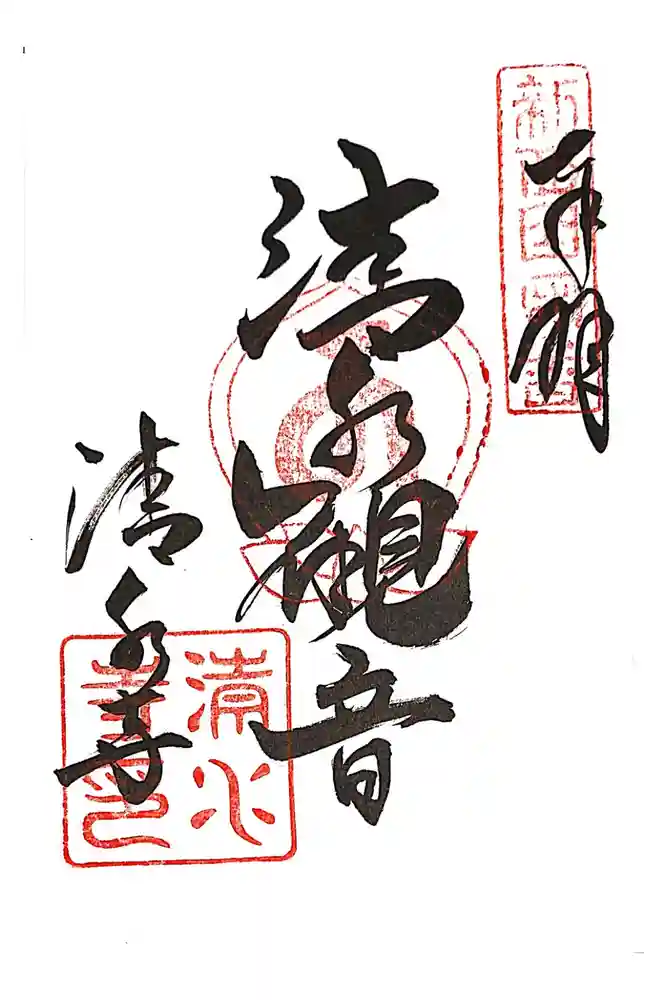 奉拝
新西国
清水観音
清水寺
清水
寺印